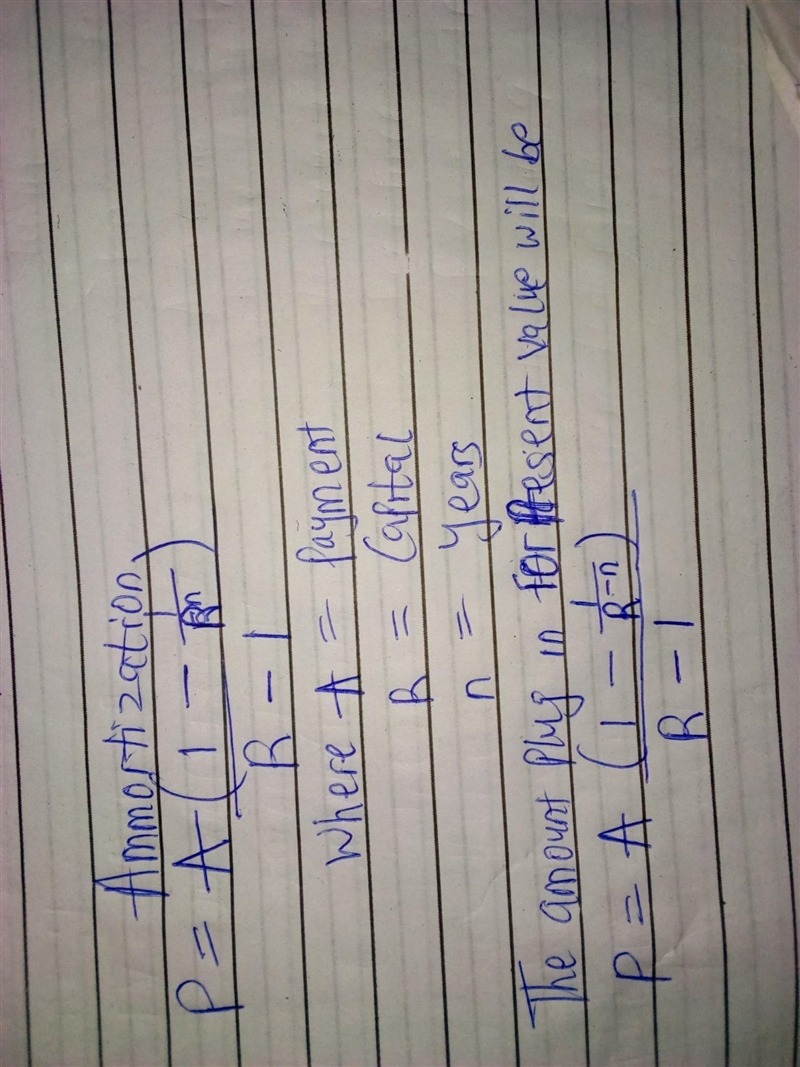 Ammortization
P = A (1 - 1/Rⁿ)
R - 1
Where A = Payment
R = Capital
n = Years
The amount Plug in for Present value will be
P = A (1 - 1/R⁻ⁿ)
R - 1